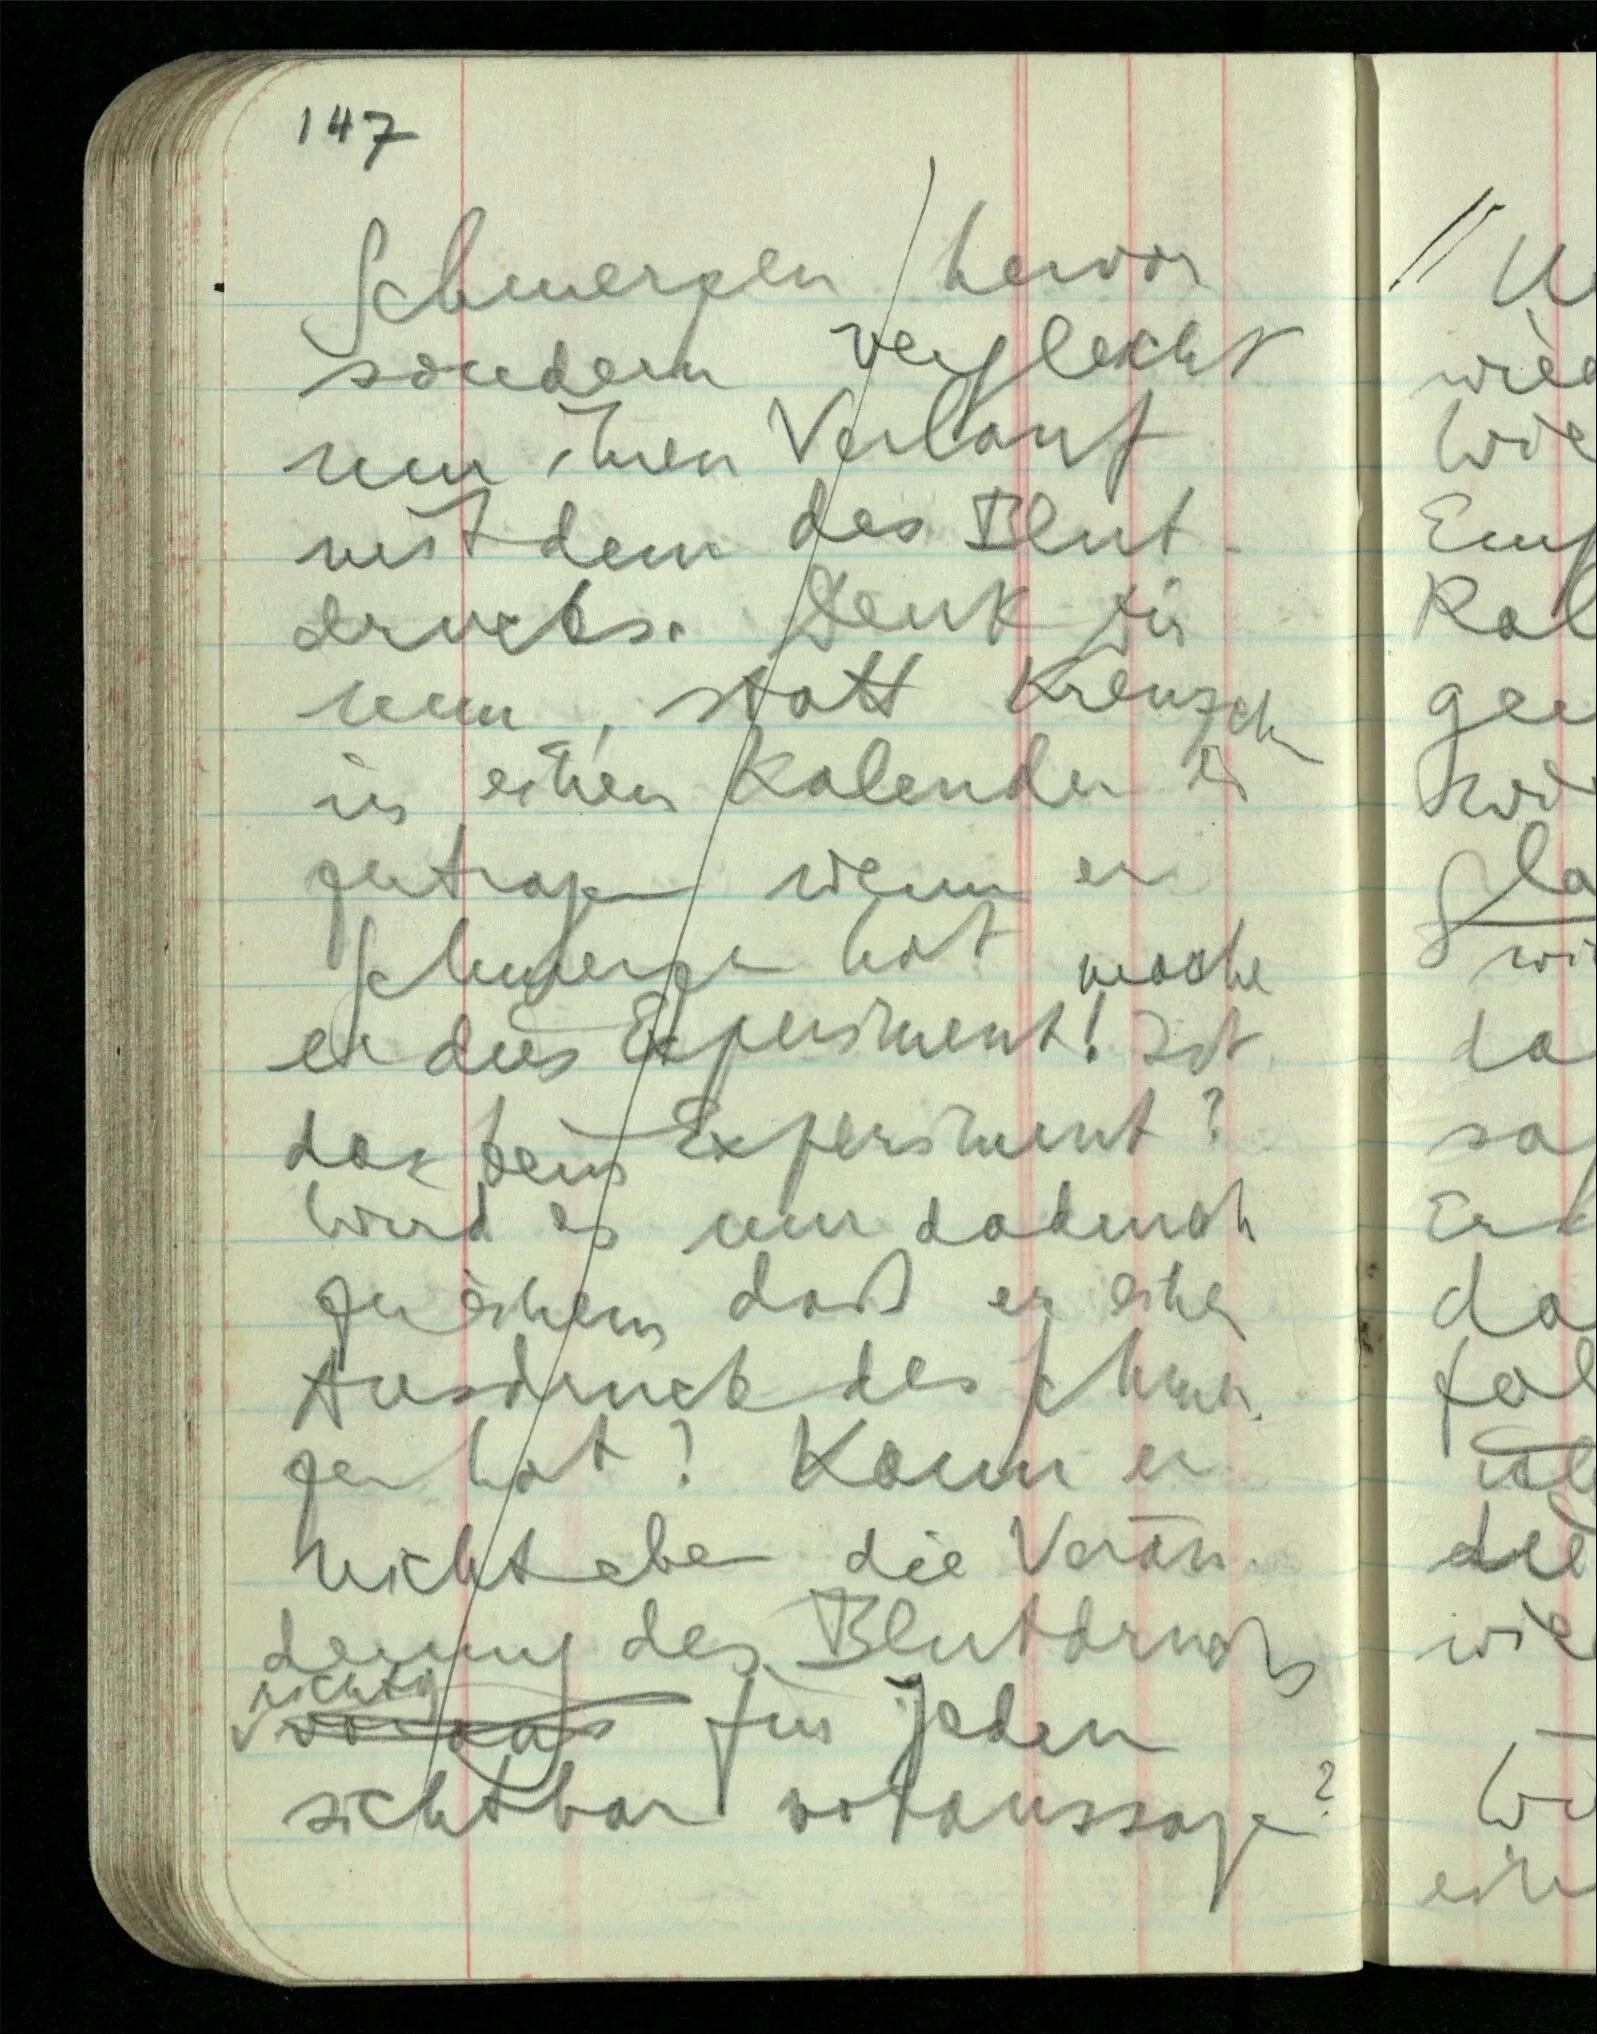 147
Schmerzen hervor
sondern vergleicht
nun ihren Verlauf
mit dem des Blut-
drucks. Denk Dir
nun, statt Kreuzchen
in einen Kalender ein
zutragen wenn er
Schmerzen hat mache
er dies Experiment! Ist
das kein Experiment?
Wird es nur dadurch
zu einem daß er einen
Ausdruck des Schmer-
zes hat? Kann er
nicht eben die Verän-
derung des Blutdrucks
richtig
voraus für jeden
sichtbar voraussagen?